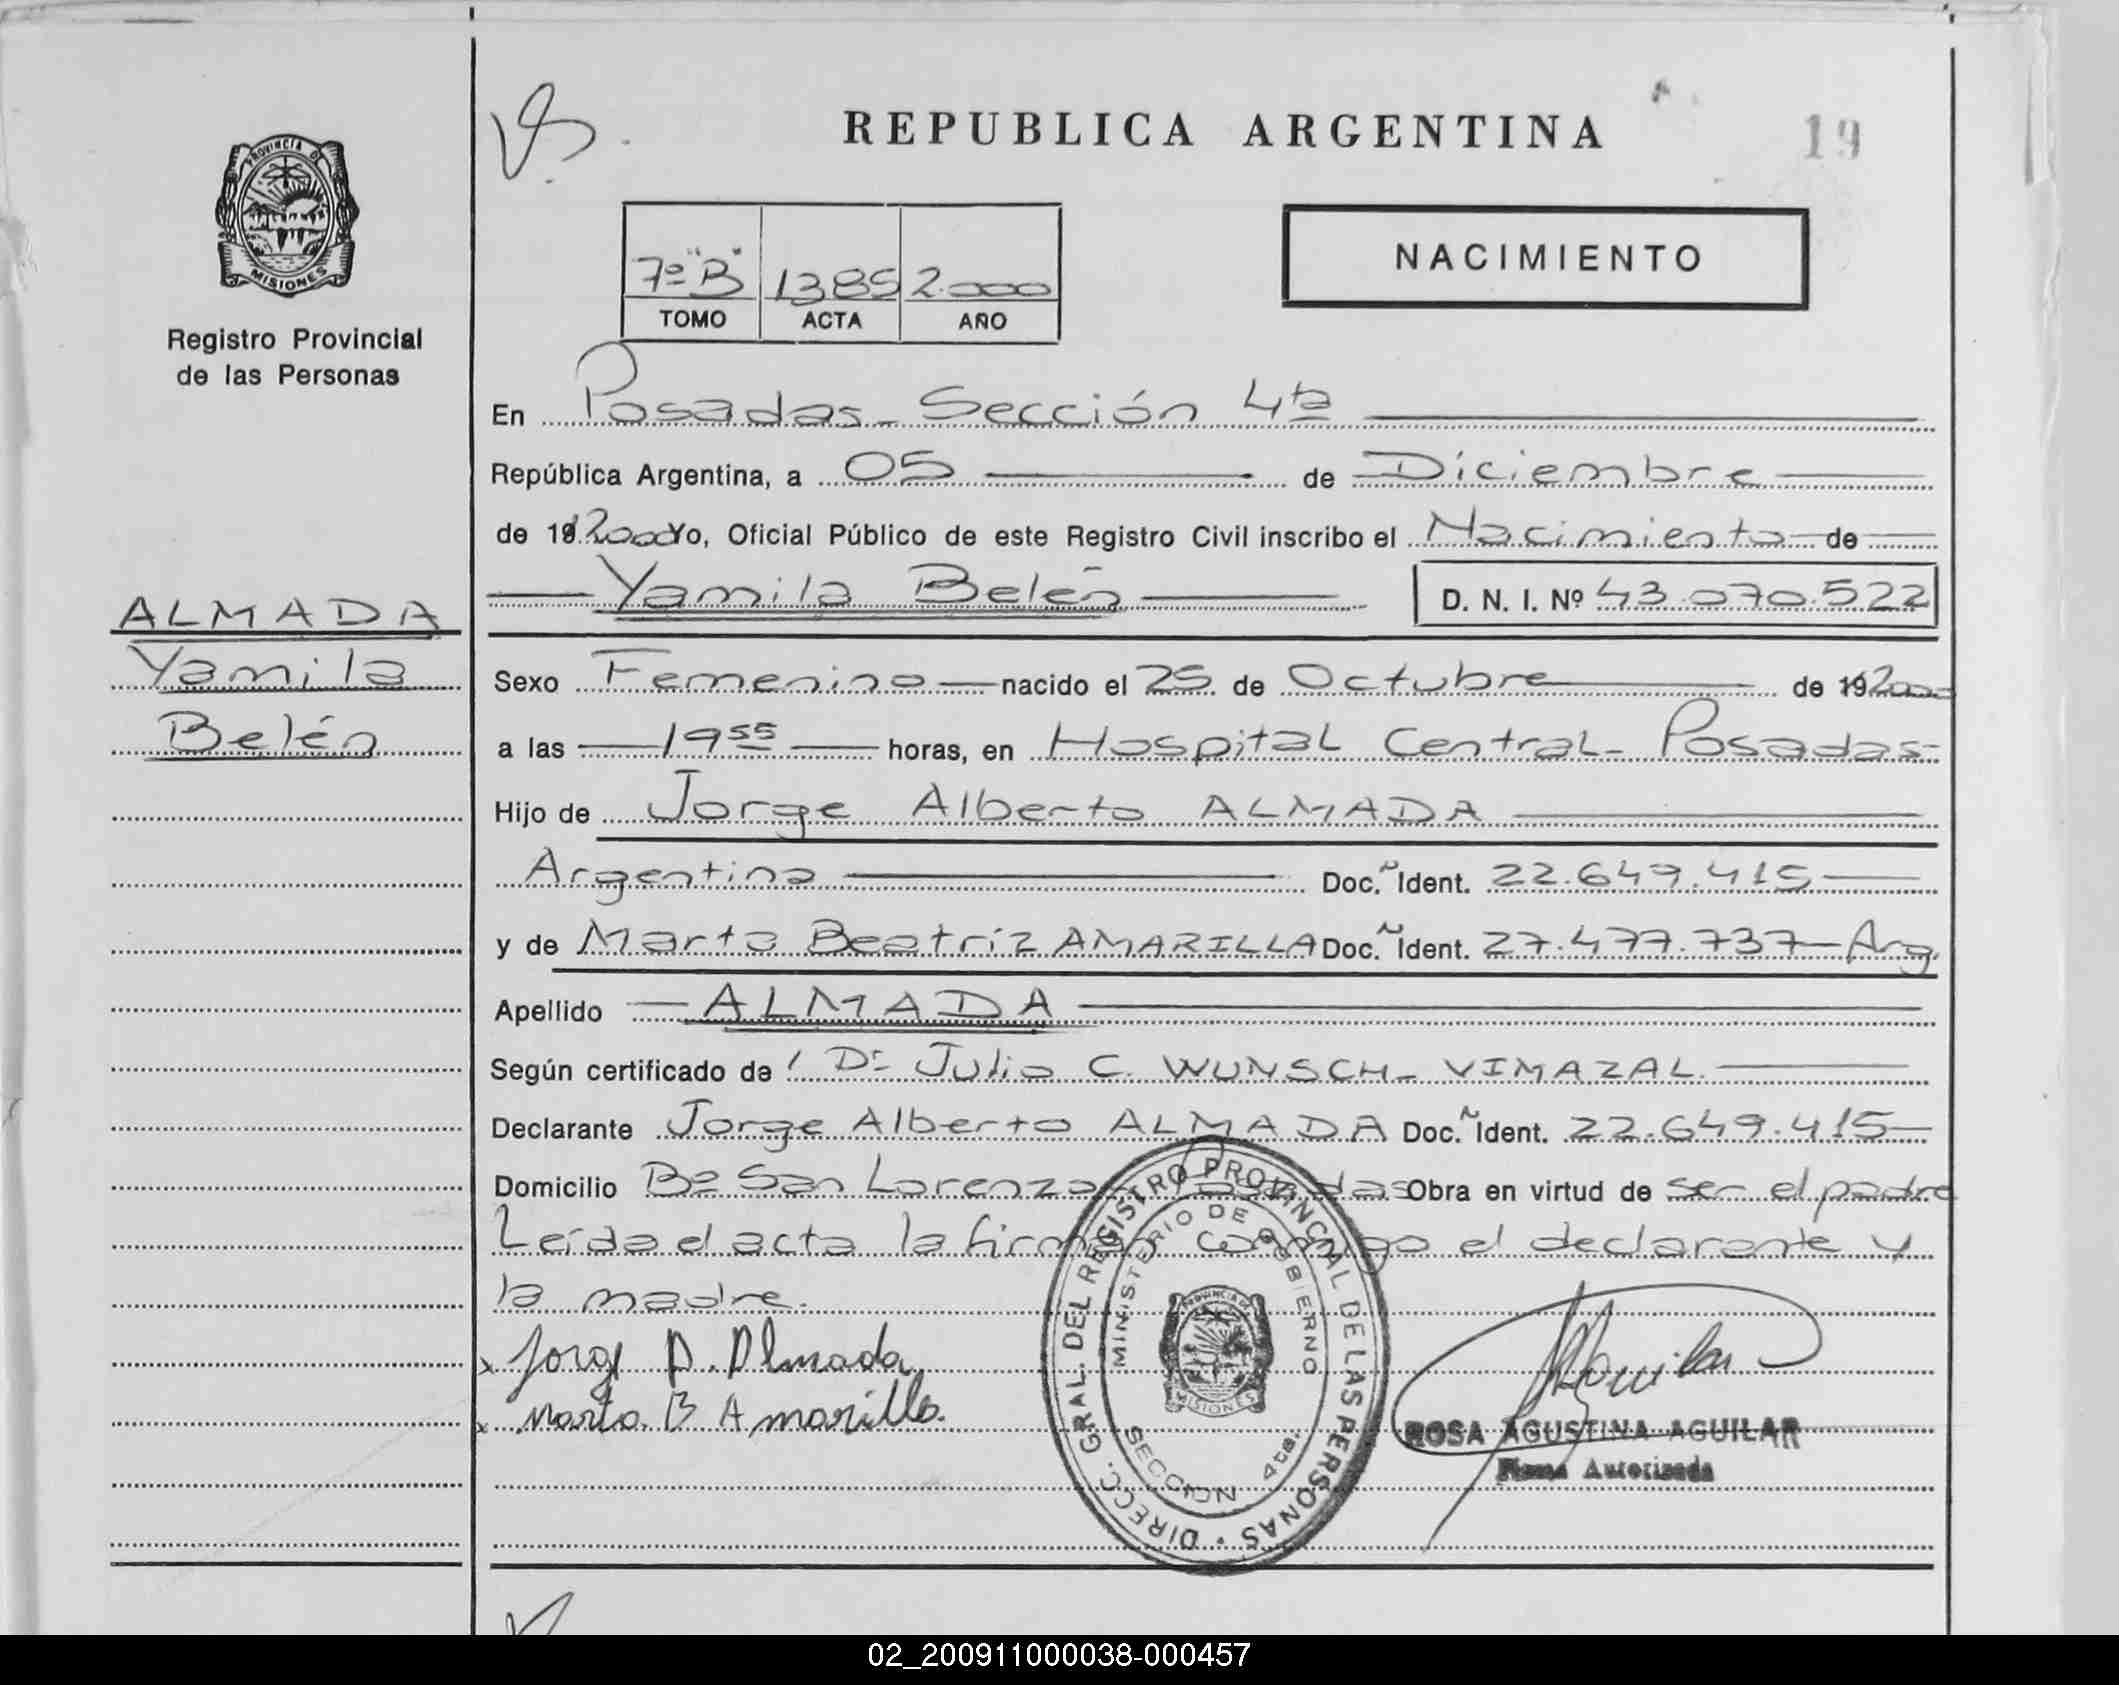 REPUBLICA ARGENTINA
19
PROVINCIA DE
MISIONES
Registro Provincial
de las Personas
7º "B" 1385 2.000
TOMO ACTA AÑO
NACIMIENTO
En Posadas - Sección 4ta
República Argentina, a 05 de Diciembre
de 19 2000 Yo, Oficial Público de este Registro Civil inscribo el Nacimiento de
Yamila Belén D. N. I. Nº 43.070.522
ALMADA
Yamila
Belén
Sexo Femenino nacido el 25 de Octubre de 19 2000
a las 19 55 horas, en Hospital Central - Posadas -
Hijo de Jorge Alberto ALMADA
Argentina Doc. Ident. 22.649.415
y de Marta Beatríz AMARILLA Doc. Ident. 27.477.737 - Arg.
Apellido ALMADA
Según certificado de Dr Julio C. WUNSCH - VIMAZAL.
Declarante Jorge Alberto ALMADA Doc. Ident. 22.649.415
Domicilio Bº San Lorenzo Posadas Obra en virtud de ser el padre
Leída el acta la firman conmigo el declarante y
la madre.
x Jorge A. Almada
x Marta B Amarilla.
DIRECC. GRAL. DEL REGISTRO PROVINCIAL DE LAS PERSONAS
MINISTERIO DE GOBIERNO
PROVINCIA DE
MISIONES
SECCION 4ta.
RAguilar
ROSA AGUSTINA AGUILAR
Firma Autorizada
02_200911000038-000457